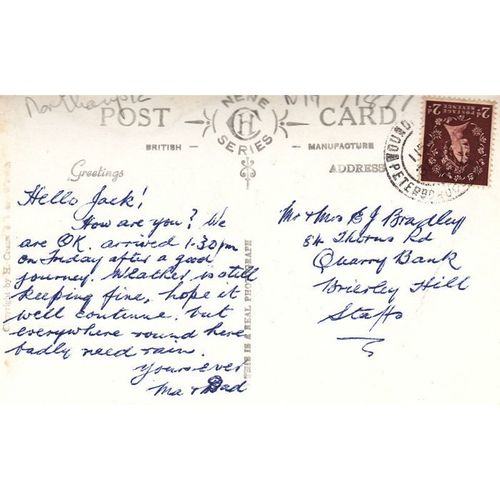 POST CARD
NENE SERIES
HC
BRITISH MANUFACTURE
Greetings
ADDRESS
2D POSTAGE REVENUE 2D
PETERBOROUGH
Hello Jack!
How are you? We
are OK. arrived 1.30pm
on Friday after a good
journey. Weather is still
keeping fine, hope it
well continue. but
everywhere round here
badly need rain.
Yours ever
Ma & Dad
Mr & Mrs B J Bradley
84 Thorns Rd
Quarry Bank
Brierley Hill
Staffs
THIS IS A REAL PHOTOGRAPH
Copyright by H.